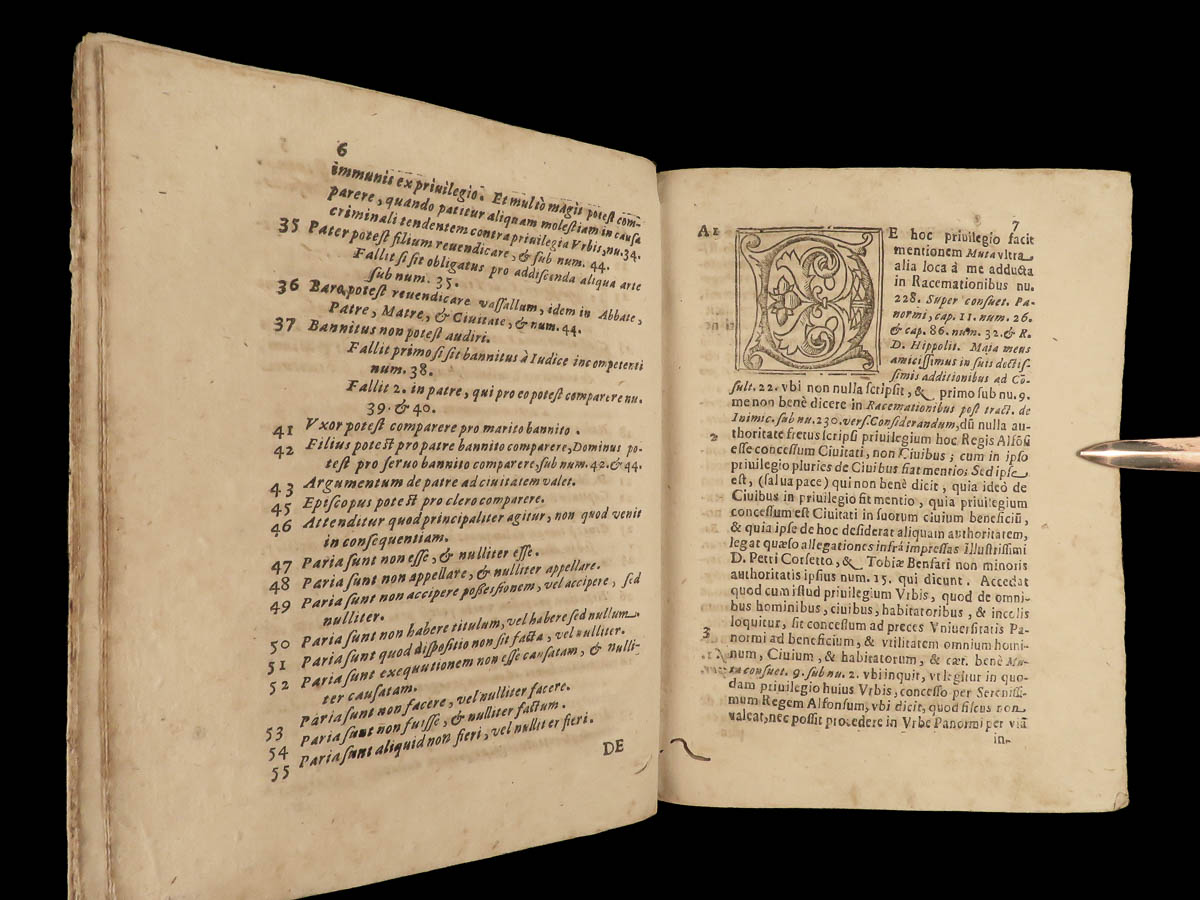 6
immunis ex priuilegio. Et multò magis potest com-
parere, quando patitur aliquam molestiam in causa
criminali tendentem contra priuilegia Vrbis, nu. 34.
35 Pater potest filium reuendicare, & sub num. 44.
Fallit si sit obligatus pro addiscenda aliqua arte
sub num. 35.
36 Baro potest reuendicare vassallum, idem in Abbate,
Patre, Matre, & Ciuitate, & num. 44.
37 Bannitus non potest audiri.
Fallit primo si sit bannitus à Iudice incompetenti
num. 38.
Fallit 2. in patre, qui pro eo potest comparere nu.
39. & 40.
41 Vxor potest comparere pro marito bannito.
42 Filius potest pro patre bannito comparere, Dominus po-
test pro seruo bannito comparere, sub num. 42. & 44.
43 Argumentum de patre ad ciuitatem valet.
45 Episcopus potest pro clero comparere.
46 Attenditur quod principaliter agitur, non quod venit
in consequentiam.
47 Paria sunt non esse, & nulliter esse.
48 Paria sunt non appellare, & nulliter appellare.
49 Paria sunt non accipere possessionem, vel accipere, sed
nulliter.
50 Paria sunt non habere titulum, vel habere sed nullum.
51 Paria sunt quod dispositio non sit facta, vel nulliter.
52 Paria sunt exequutionem non esse causatam, & nulli-
ter causatam.
53 Paria sunt non facere, vel nulliter facere.
54 Paria sunt non fuisse, & nulliter factum.
55 Paria sunt aliquid non fieri, vel nulliter fieri.
DE
7
A 1 DE hoc priuilegio facit
mentionem Muta vltra
alia loca à me adducta
in Racemationibus nu.
228. Super consuet. Pa-
normi, cap. 11. num. 26.
& cap. 86. num. 32. & R.
D. Hippolit. Maia meus
amicissimus in suis doctis-
simis additionibus ad Cō-
sult. 22. vbi non nulla scripsit, & primo sub nu. 9.
me non benè dicere in Racemationibus post tract. de
Inimic. sub nu. 230. vers. Considerandum, dū nulla au-
2 thoritate fretus scripsi priuilegium hoc Regis Alfōsi
esse concessum Ciuitati, non Ciuibus; cum in ipso
priuilegio pluries de Ciuibus fiat mentio; Sed ipse
est, (salua pace) qui non benè dicit, quia ideò de
Ciuibus in priuilegio fit mentio, quia priuilegium
concessum est Ciuitati in suorum ciuium beneficiū,
& quia ipse de hoc desiderat aliquam authoritatem,
legat quæso allegationes infrà impressas Illustrissimi
D. Petri Corsetto, & Tobiæ Bensari non minoris
authoritatis ipsius num. 15. qui dicunt. Accedat
quod cum istud priuilegium Vrbis, quod de omni-
bus hominibus, ciuibus, habitatoribus, & incolis
loquitur, sit concessum ad preces Vniuersitatis Pa-
3 normi ad beneficium, & vtilitatem omnium homi-
num, Ciuium, & habitatorum, & cæt. benè Mu-
ta consuet. 9. sub nu. 2. vbi inquit, vt legitur in quo-
dam priuilegio huius Vrbis, concesso per Serenissi-
mum Regem Alfonsum, vbi dicit, quod fiscus non
valeat, nec possit procedere in Vrbe Panormi per viā
in-